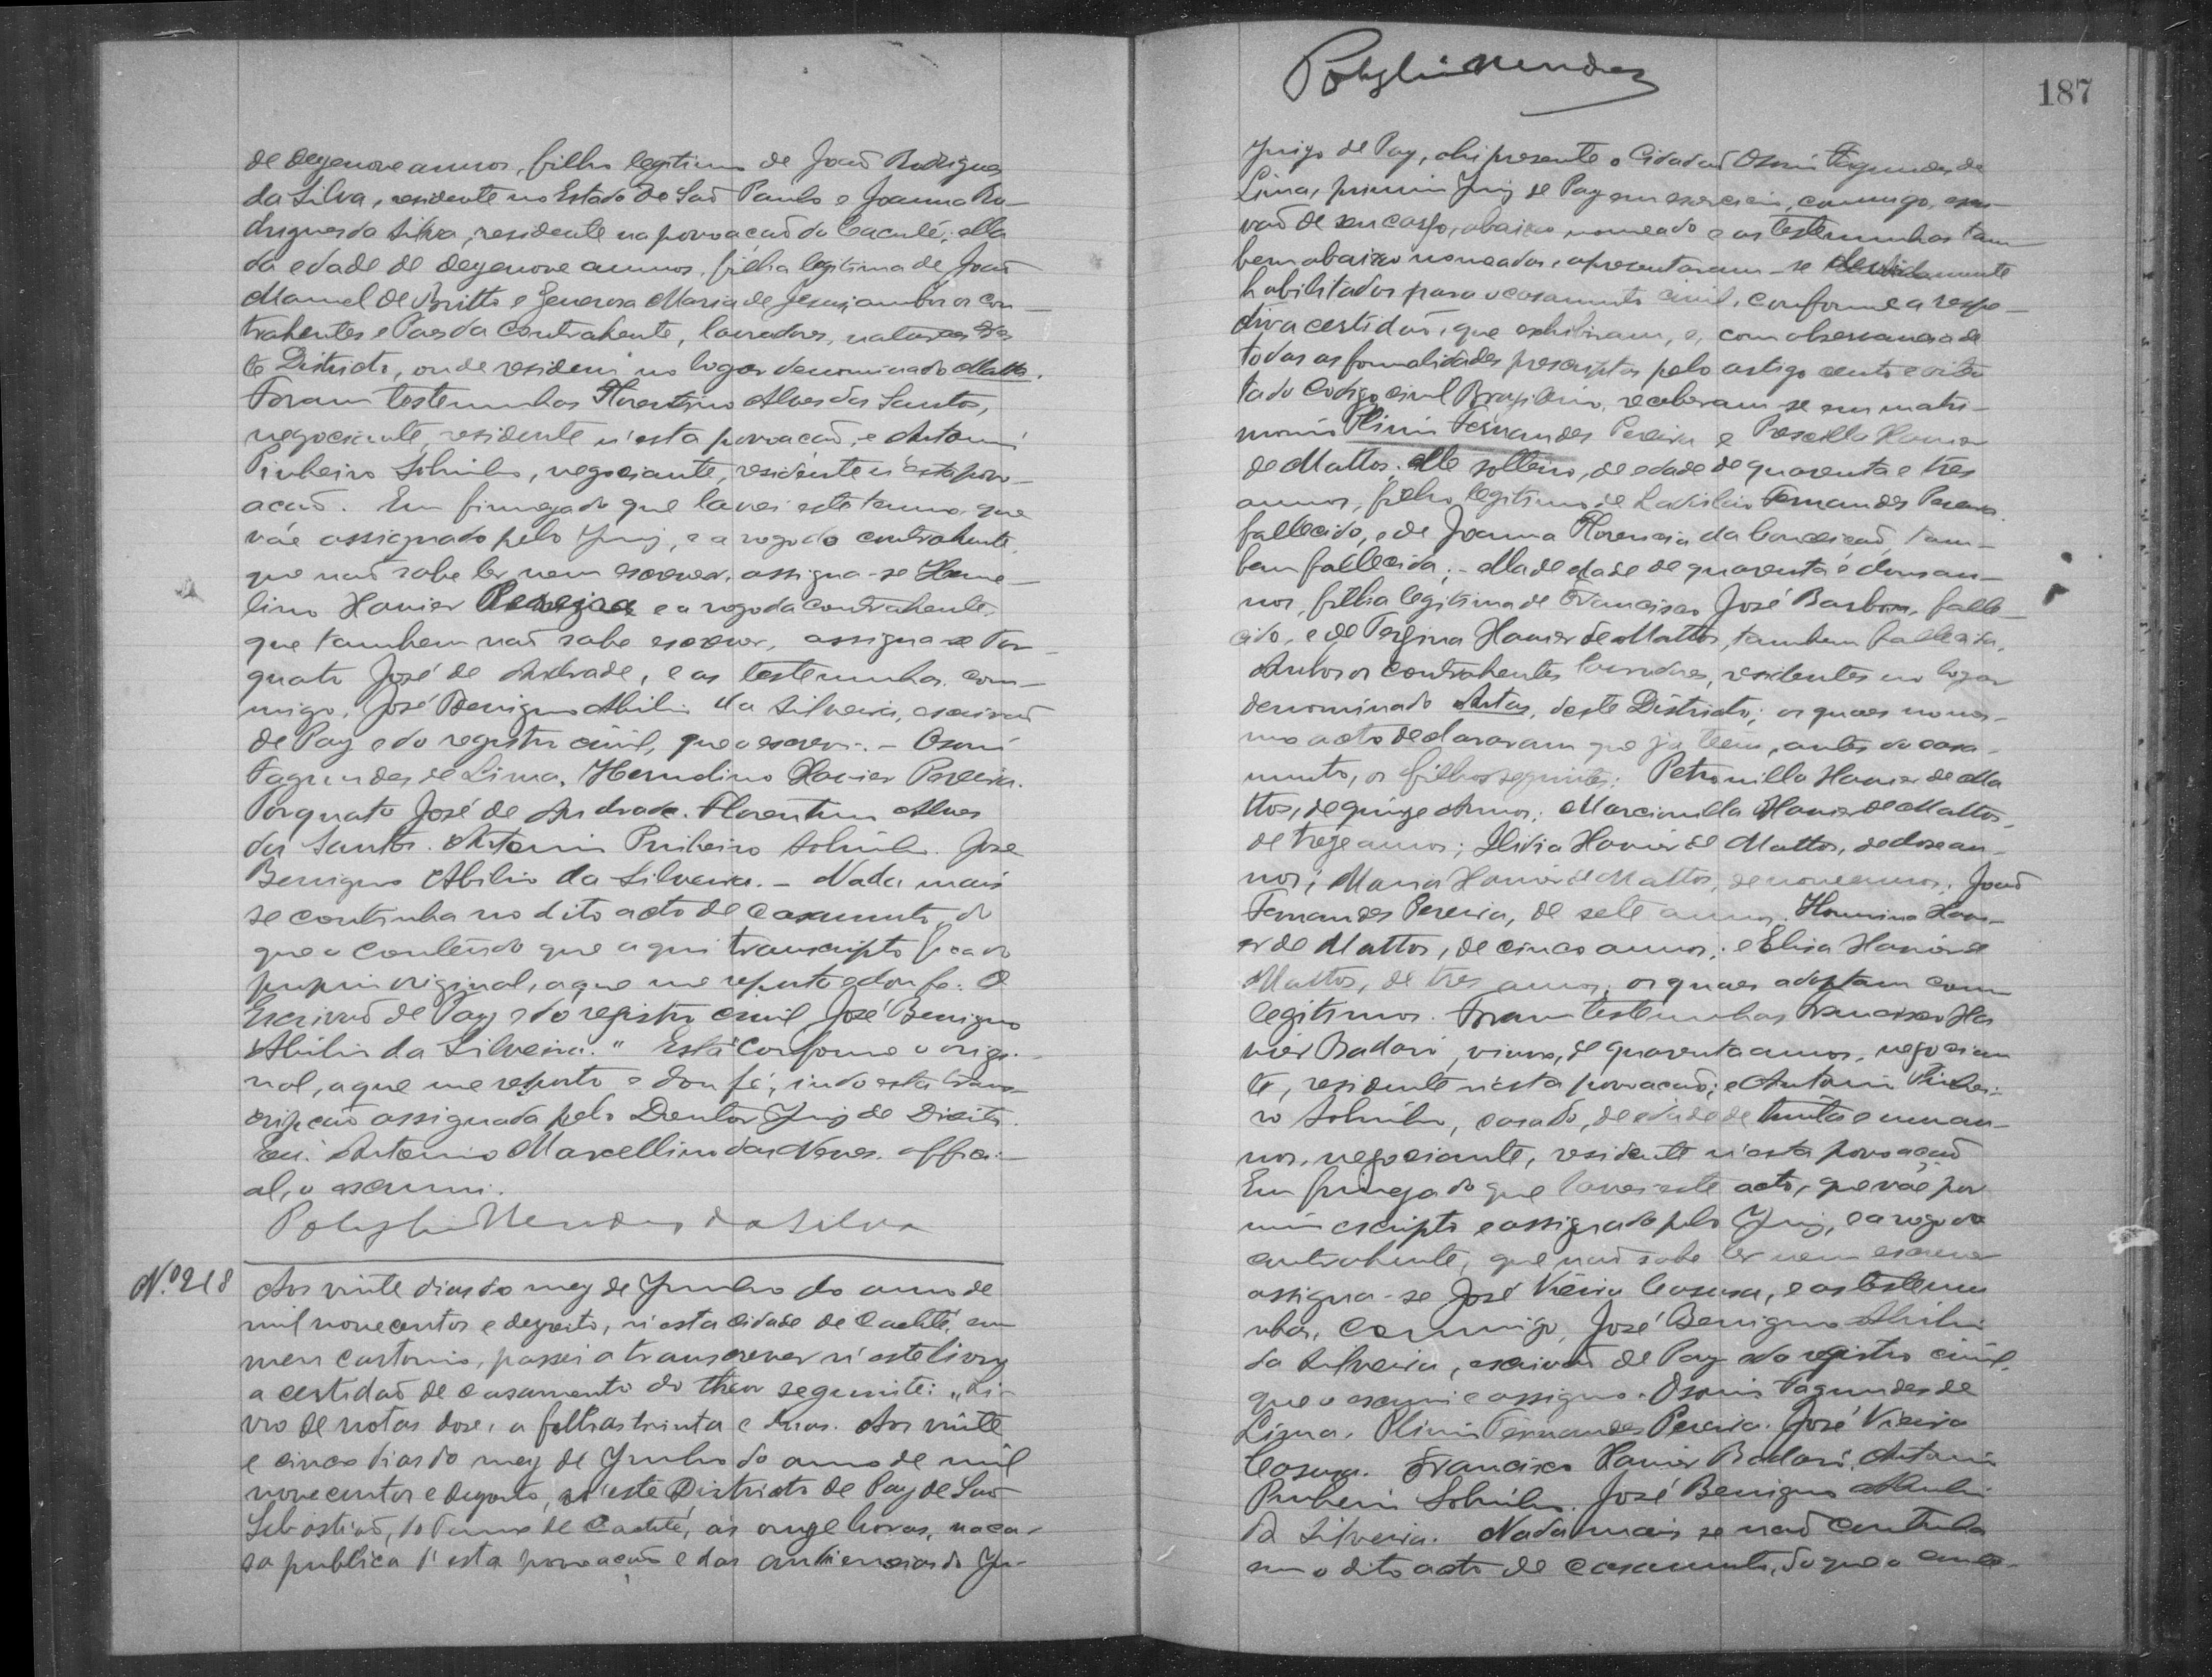 de dezenove annos, filho legitimo de João Rodrigues
da Silva, residente no Estado de São Paulo e Joanna Ro-
drigues da Silva, residente na povoação do Caculé; ella
da edade de dezenove annos, filha legitima de João
Manoel de Britto e Generosa Maria de Jesus, ambos os con-
trahentes e Paes da Contrahente, lavradores, naturaes des
te Districto, onde residem no logar denominado Matto.
Foram testemunhas Florentino Alves dos Santos,
negociante, residente n'esta povoação, e Antonio
Pinheiro Sobrinho, negociante, residente n'esta povo-
ação. Em firmeza do que lavrei este termo, que
váe assignado pelo Juiz, e a rogo do contrahente,
que não sabe ler nem escrever, assigna-se Herme-
lino Xavier Pereira e a rogo da contrahente,
que tambem não sabe escrever, assigna-se Tor-
quato José de Andrade, e as testemunhas com-
migo, José Benigno Abilio da Silveira, escrivão
de Paz e do registro civil, que o escrevi. - Osorio
Fagundes de Lima. Hermelino Xavier Pereira.
Torquato José de Andrade. Florentino Alves
dos Santos. Antonio Pinheiro Sobrinho. José
Benigno Abilio da Silveira. - Nada mais
se continha no dito acto de casamento, do
que o conteúdo que aqui transcripto fica do
proprio original, a que me reporto e dou fe. O
Escrivão de Paz e do registro civil José Benigno
Abilio da Silveira." Está conforme o origi-
nal, a que me reporto e dou fé, indo esta trans-
cripção assignada pelo Doutor Juiz de Direito.
Eu, Antonio Marcellino das Neves, offici-
al, o escrevi.
Polyβio Mendes da Silva
Nº 218
Aos vinte dias do mez de Junho do anno de
mil novecentos e dezoito, n'esta cidade de Caetité, em
meu cartorio, passei a transcrever n'este livro
a certidão de casamento do theor seguinte: "Li-
vro de notas doze, a folhas trinta e duas. Aos vinte
e cinco dias do mez de Junho do anno de mil
novecentos e dezoito, n'este Districto de Paz de São
Sebastião, do Termo de Caetité, ás onze horas, na ca-
sa publica d'esta povoação e das audiencias do Ju-
Polybio Mendes
187
Juizo de Paz, ahi presente o Cidadão Osorio Fagundes de
Lima, primeiro Juiz de Paz em exercicio, commigo, escri-
vão de seu cargo, abaixo nomeado e as testemunhas tam-
bem abaixo nomeadas, apresentaram-se devidamente
habilitados para o casamento civil, conforme a respe-
ctiva certidão, que exhibiram, e, com observancia de
todas as formalidades prescriptas pelo artigo cento e oiten
ta do Codigo civil Brazileiro, receberam-se em matri-
monio Plinio Fernandes Pereira e Prescilla Xavier
de Mattos. Elle solteiro, de edade de quarenta e tres
annos, filho legitimo de Ladislio Fernandes Pereira
fallecido, e de Joanna Florencia da Conceição, tam-
bem fallecida; - ella de edade de quarenta e dous an-
nos, filha legitima de Francisco José Barbosa, falle-
cido, e de Porfiria Xavier de Mattos, tambem fallecida.
Ambos os contrahentes lavradores, residentes no logar
denominado Antas, deste Districto; os quaes no mes-
mo acto declararam que já teem, antes do casa-
mento, os filhos seguintes: Petronilla Xavier de Ma
ttos, de quinze Annos; Marcionilla Xavier de Mattos,
de treze annos; Ilidia Xavier de Mattos, de doze an-
nos; Maria Xavier de Mattos, de nove annos; João
Fernandes Pereira, de sete annos. Hermina Xavi-
er de Mattos, de cinco annos; e Elisa Xavier de
Mattos, de tres annos; os quaes adoptam como
legitimos. Foram testemunhas Francisco Xa
vier Badaró, viuvo, de quarenta annos, negocian
te, residente n'esta povoação; e Antonio Pinhei-
ro Sobrinho, casado, de edade de trinta e um an-
nos, negociante, residente n'esta povoação
Em firmeza do que lavrei este acto, que váe por
mim escripto e assignado pelo Juiz, e a rogo da
contrahente, que não sabe ler nem escrever
assigna-se José Vieira Cosusa, e as testemu
nhas, commigo, José Benigno Abilio
da Silveira, escrivão de Paz e do registro civil,
que o escrevi e assigno. Osorio Fagundes de
Lima. Plinio Fernandes Pereira. José Vieira
Cosusa. Francisco Xavier Badaró. Antonio
Pinheiro Sobrinho. José Benigno Abilio
da Silveira. Nada mais se não continha
em o dito acto de casamento, do que o conte-